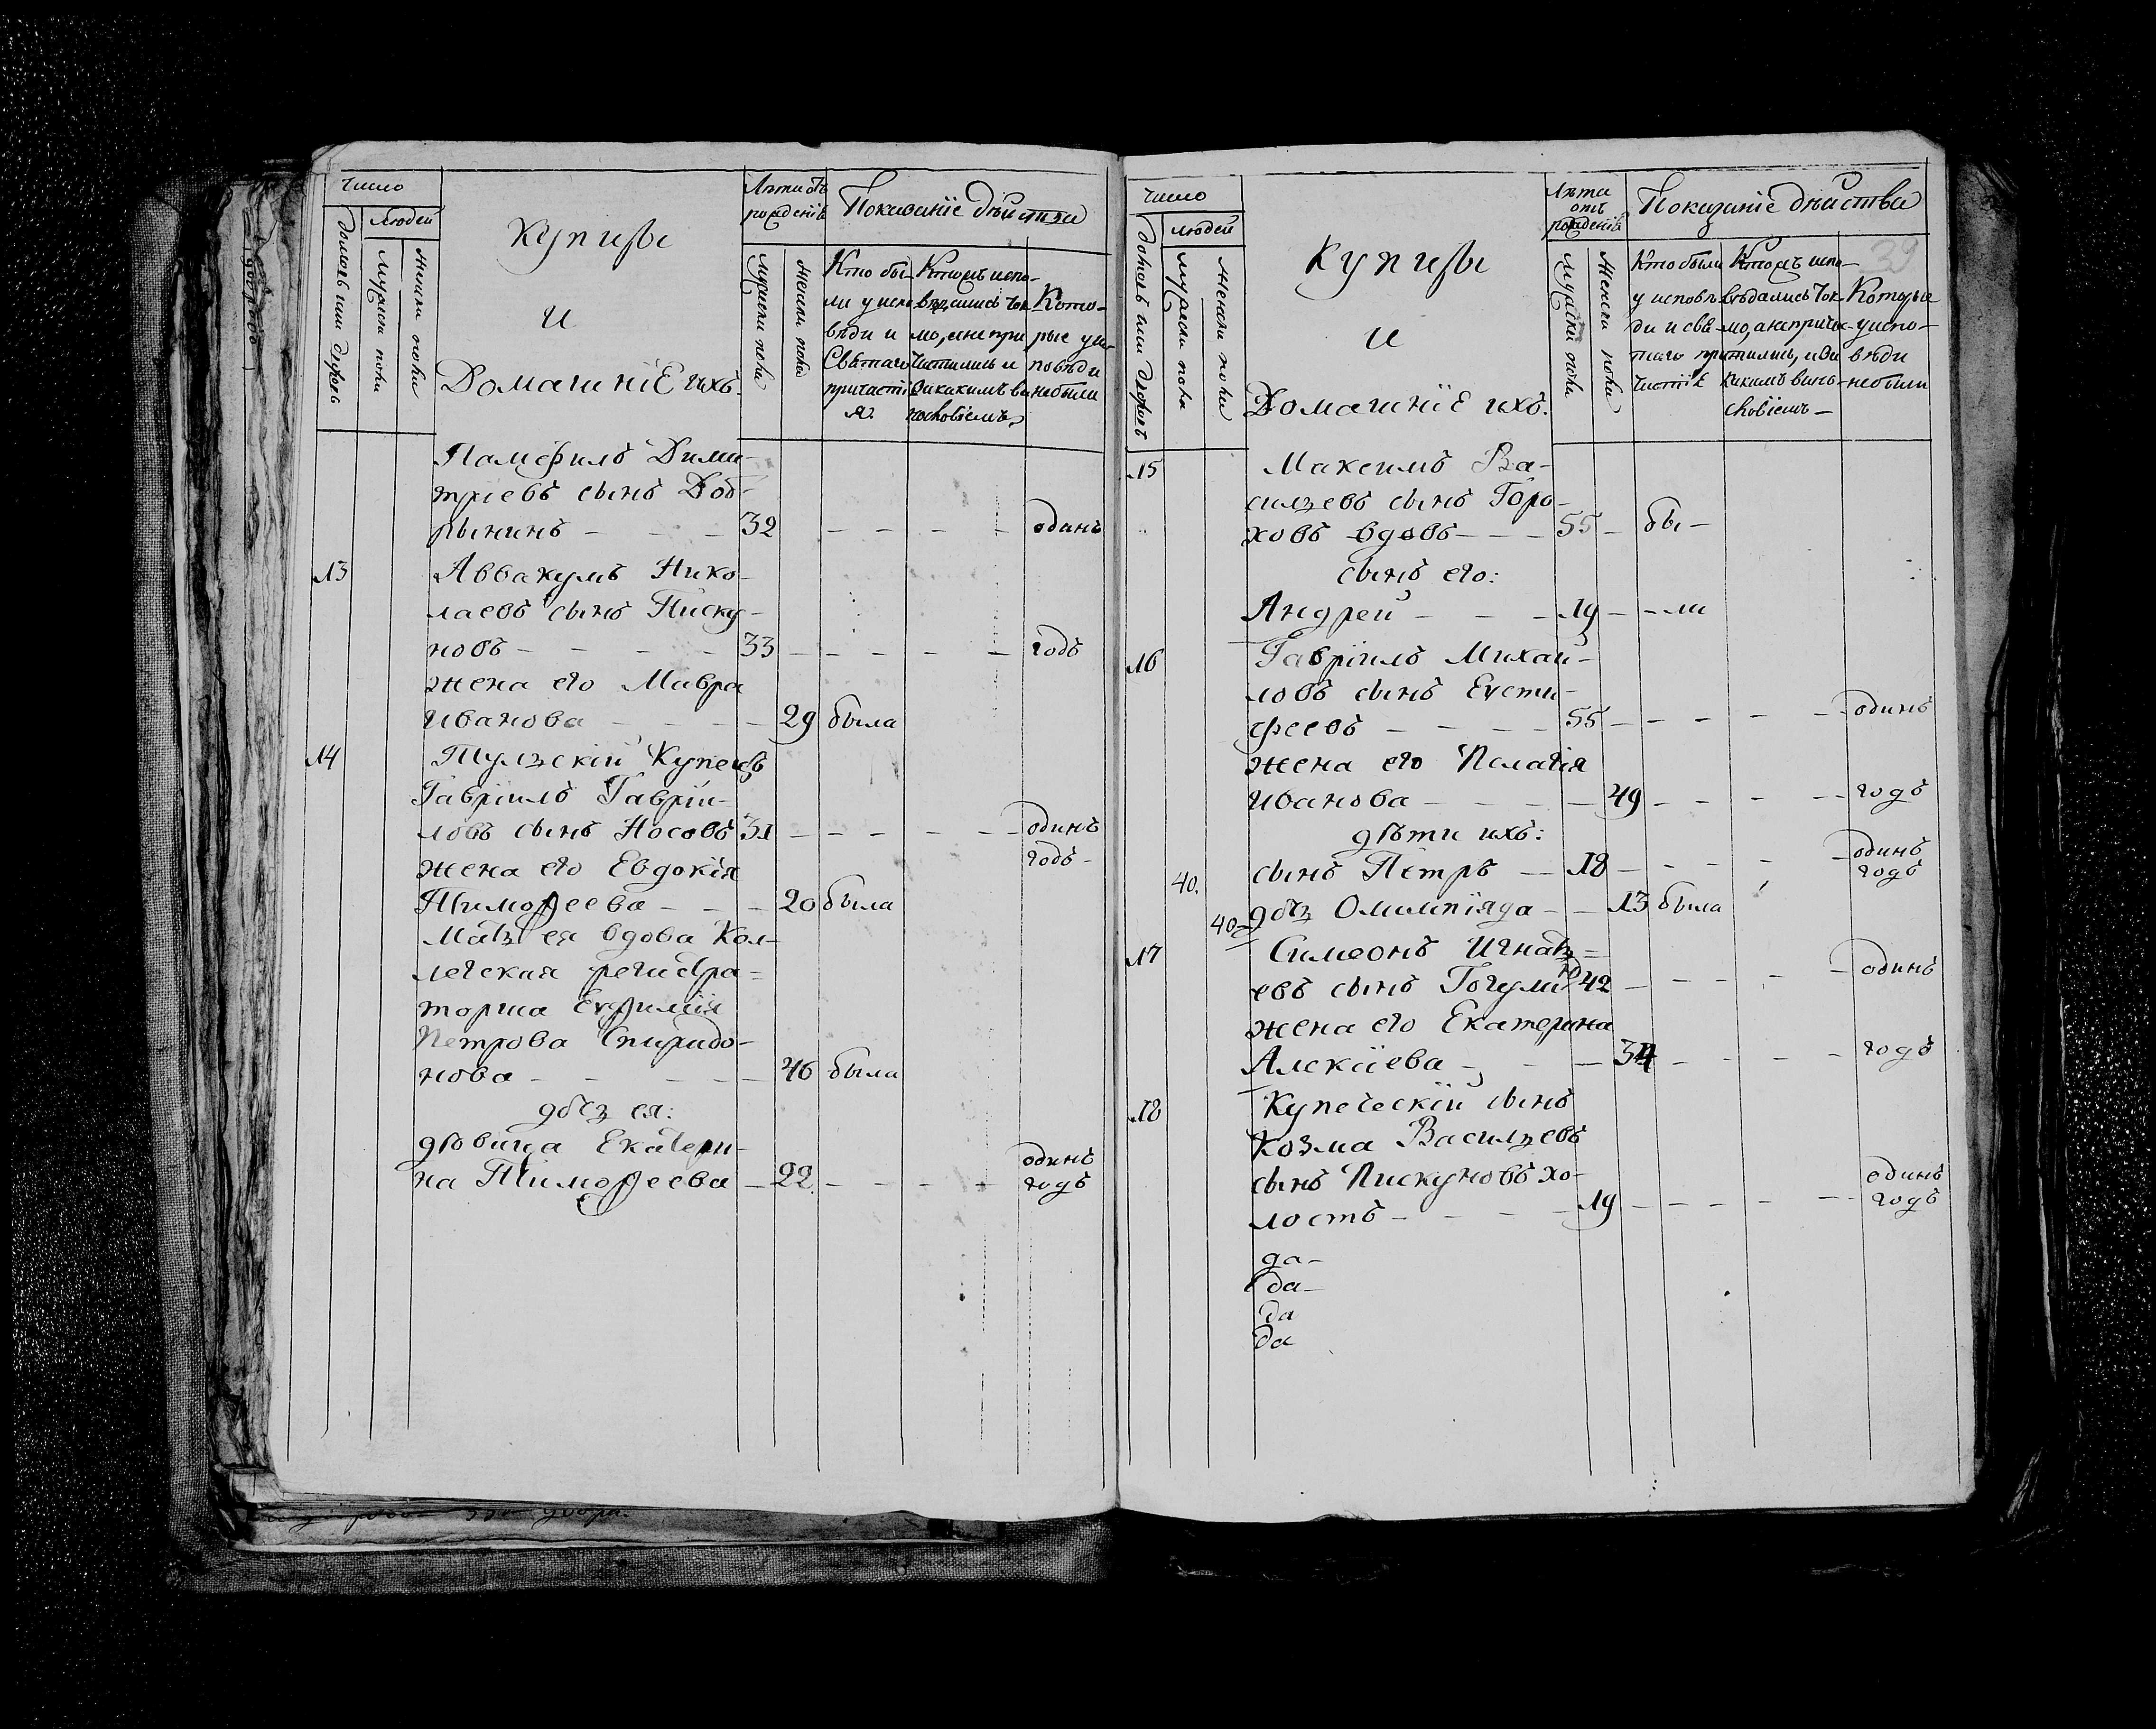 Число
людей
домовъ или дворовъ
мужска пола
женска пола
Купцы
и
Домашніе ихъ.
Лѣта отъ
рожденія
мужска пола
женска пола
Показаніе дѣйства
Кто бы-
ли у испо
вѣди и
Святаго
причасті
я.
Кто исп-
вѣдались ток
мо, а не при
частились и
за какимъ ви
нословіемъ
Кото-
рые у ис
повѣди
небыли
Памфилъ Дими-
тріевъ сынъ Доб-
рынинъ - - - 32 - - - - одинъ
13 Аввакумъ Нико-
лаевъ сынъ Писку-
новъ - - - - 33 - - - - - годъ
жена его Мавра
Иванова - - - - 29 была
14 Тульскій Купецъ
Гавріилъ Гаврі-
ловъ сынъ Носовъ 31 - - - - - одинъ
годъ -
жена его Евдокія
Тимоѳеева - - - 20 была
Мать ея вдова Кол-
лежская регистра=
торша Евфимія
Петрова Спиридо-
нова - - - - - 46 была
дочь ея:
дѣвица Екатери-
на Тимоѳеева - 22. - - - - одинъ
годъ
Число
людей
домовъ или дворовъ
мужска пола
женска пола
Купцы
и
Домашніе ихъ.
Лѣта
отъ
рожденія
мужска пола
женска пола
Показаніе дѣйства
39
Кто были
у исповѣ
ди и свя-
таго при
частія
Кто исп-
вѣдались ток-
мо, а не прича-
тились, и за
какимъ вино-
словіемъ -
Которые
у испо-
вѣди
небыли
15 Максимъ Ва-
сильевъ сынъ Горо-
ховъ вдовъ - - - 55 - бы -
сынъ его:
Андрей - - - 19 - - ли
16 Гавріилъ Михай-
ловъ сынъ Евсти-
феевъ - - - - 55 - - - - - одинъ
жена его Пелагія
Иванова - - - - - 49 - - - - - годъ
дѣти ихъ:
сынъ Петръ - - 18 - - - - - одинъ
годъ
40.
40 дочь Олимпіяда - - 13 была
17 Симеонъ Игнать=
евъ сынъ 42 - - - - - одинъ
жена его Екатерина
Алексіева - - - - 34 - - - - годъ
18 Купеческій сынъ
Козма Васильевъ
сынъ Пискуновъ хо-
лостъ - - - - 19 - - - - - одинъ
годъ
да-
да-
да
да